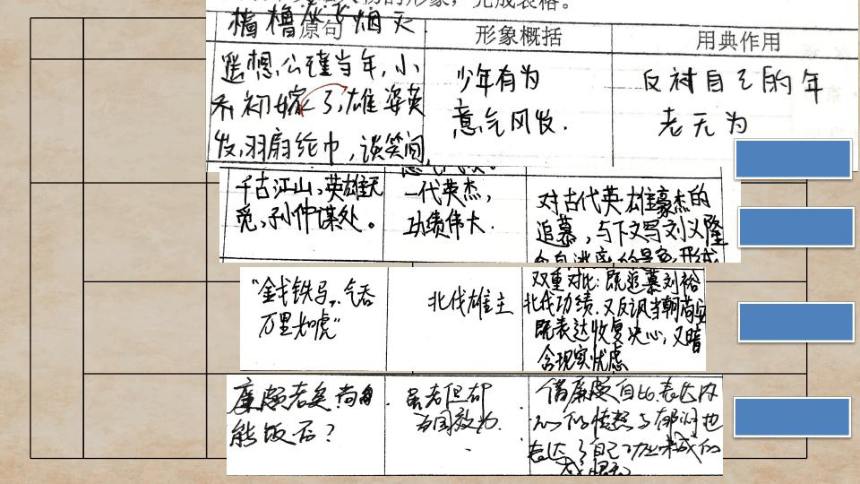 完成表格。
樯橹 烟灭.
原句 形象概括 用典作用
遥想公瑾当年,小
乔初嫁了,雄姿英
发,羽扇纶巾,谈笑间,
少年有为
意气风发.
反衬自己的年
老无为
千古江山,英雄无
觅,孙仲谋处。
一代英杰,
功绩伟大.
对古代英雄豪杰的
追慕,与下文写刘义隆
“金戈铁马,气吞
万里如虎”
北伐雄主
双重对比:既追慕刘裕
北伐功绩.又反讽当朝苟安
既表达收复决心,又暗
含现实忧虑
廉颇老矣 尚
能饭否?
虽老但却
为国效力.
借廉颇自比.表达内
心 与 也
表达了自己功业未成的